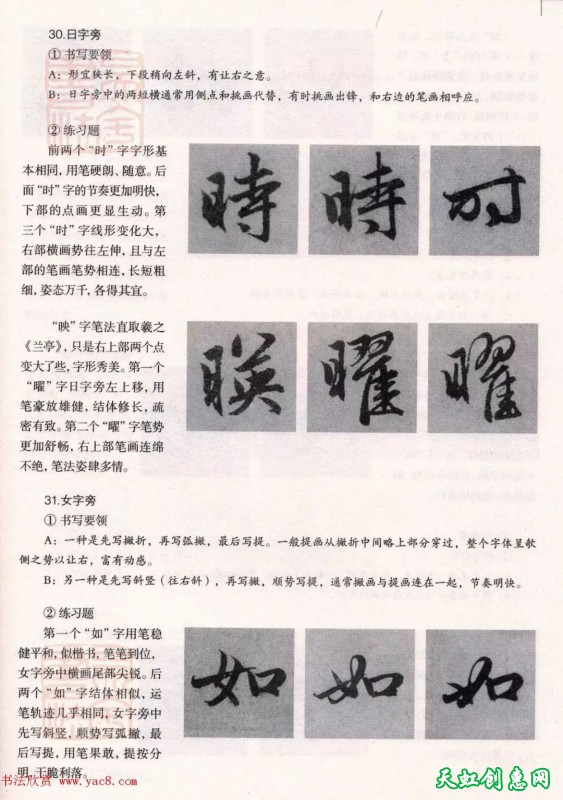 30.日字旁
①书写要领
A：形宜狭长，下段稍向左斜，有让右之意。
B：日字旁中的两短横通常用侧点和挑画代替，有时挑画出锋，和右边的笔画相呼应。
②练习题
前两个“时”字字形基
本相同，用笔硬朗、随意。后
面“时”字的节奏更加明快，
下部的点画更显生动。第
三个“时”字线形变化大，
右部横画势往左伸，且与左
部的笔画笔势相连，长短粗
细，姿态万千，各得其宜。
時 時 时
“映”字笔法直取羲之
《兰亭》，只是右上部两个点
变大了些，字形秀美。第一个
“曜”字日字旁左上移，用
笔豪放雄健，结体修长，疏
密有致。第二个“曜”字笔势
更加舒畅，右上部笔画连绵
不绝，笔法姿肆多情。
暎 曜 曜
31.女字旁
①书写要领
A：一种是先写撇折，再写弧撇，最后写提。一般提画从撇折中间略上部分穿过，整个字体呈欹
侧之势以让右，富有动感。
B：另一种是先写斜竖（往右斜），再写撇，顺势写提，通常撇画与提画连在一起，节奏明快。
②练习题
第一个“如”字用笔稳
健平和，似楷书，笔笔到位，
女字旁中横画尾部尖锐。后
两个“如”字结体相似，运
笔轨迹几乎相同，女字旁中
先写斜竖，顺势写弧撇，最
后写提，用笔果敢，提按分
明，干脆利落。
如 如 如
书法欣赏 www.yac8.com
天虹创惠网